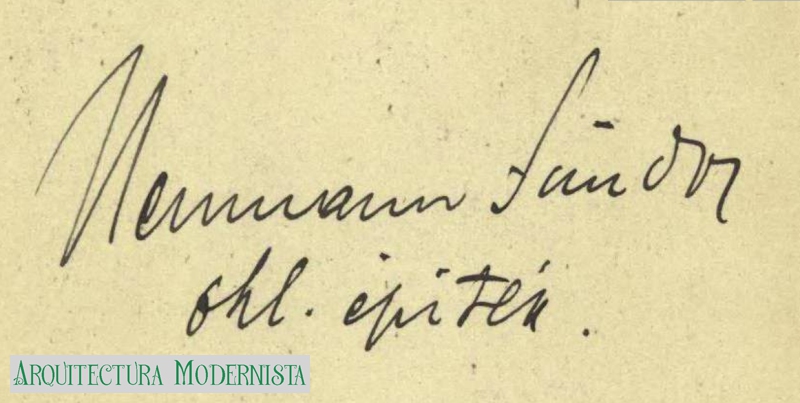 Neumann Sándor
okl. épitész.
ARQUITECTURA MODERNISTA